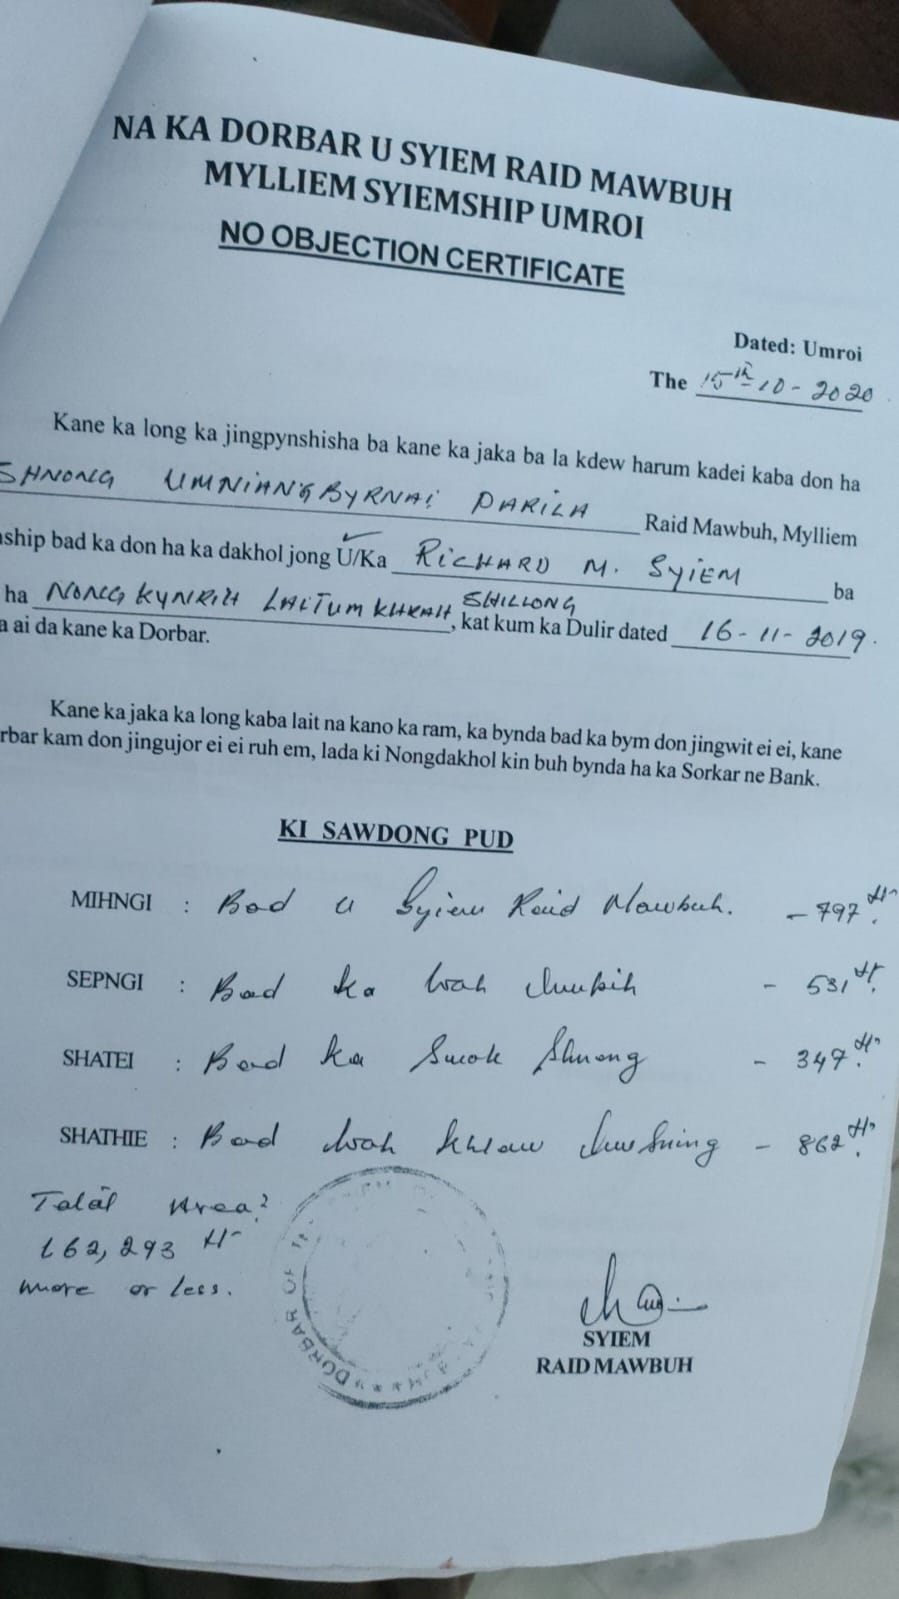 NA KA DORBAR U SYIEM RAID MAWBUH
MYLLIEM SYIEMSHIP UMROI
NO OBJECTION CERTIFICATE
Dated: Umroi
The 15th-10-2020
Kane ka long ka jingpynshisha ba kane ka jaka ba la kdew harum kadei kaba don ha
SHNONG UMNIANGBYRNAI PARILA Raid Mawbuh, Mylliem
ship bad ka don ha ka dakhol jong U/Ka RICHARD M. SYIEM ba
ha NONGKYNRIH LAITUMKHRAH SHILLONG, kat kum ka Dulir dated 16-11-2019.
a ai da kane ka Dorbar.
Kane ka jaka ka long kaba lait na kano ka ram, ka bynda bad ka bym don jingwit ei ei, kane
rbar kam don jingujor ei ei ruh em, lada ki Nongdakhol kin buh bynda ha ka Sorkar ne Bank.
KI SAWDONG PUD
MIHNGI : Bad u Syiem Raid Mawbuh. - 797 ft.
SEPNGI : Bad ka Wah - 531 ft.
SHATEI : Bad ka Shnong - 347 ft.
SHATHIE : Bad Wah Khlaw - 862 ft.
Total Area:
162,293
more or less.
DORBAR OF
SYIEM
RAID MAWBUH